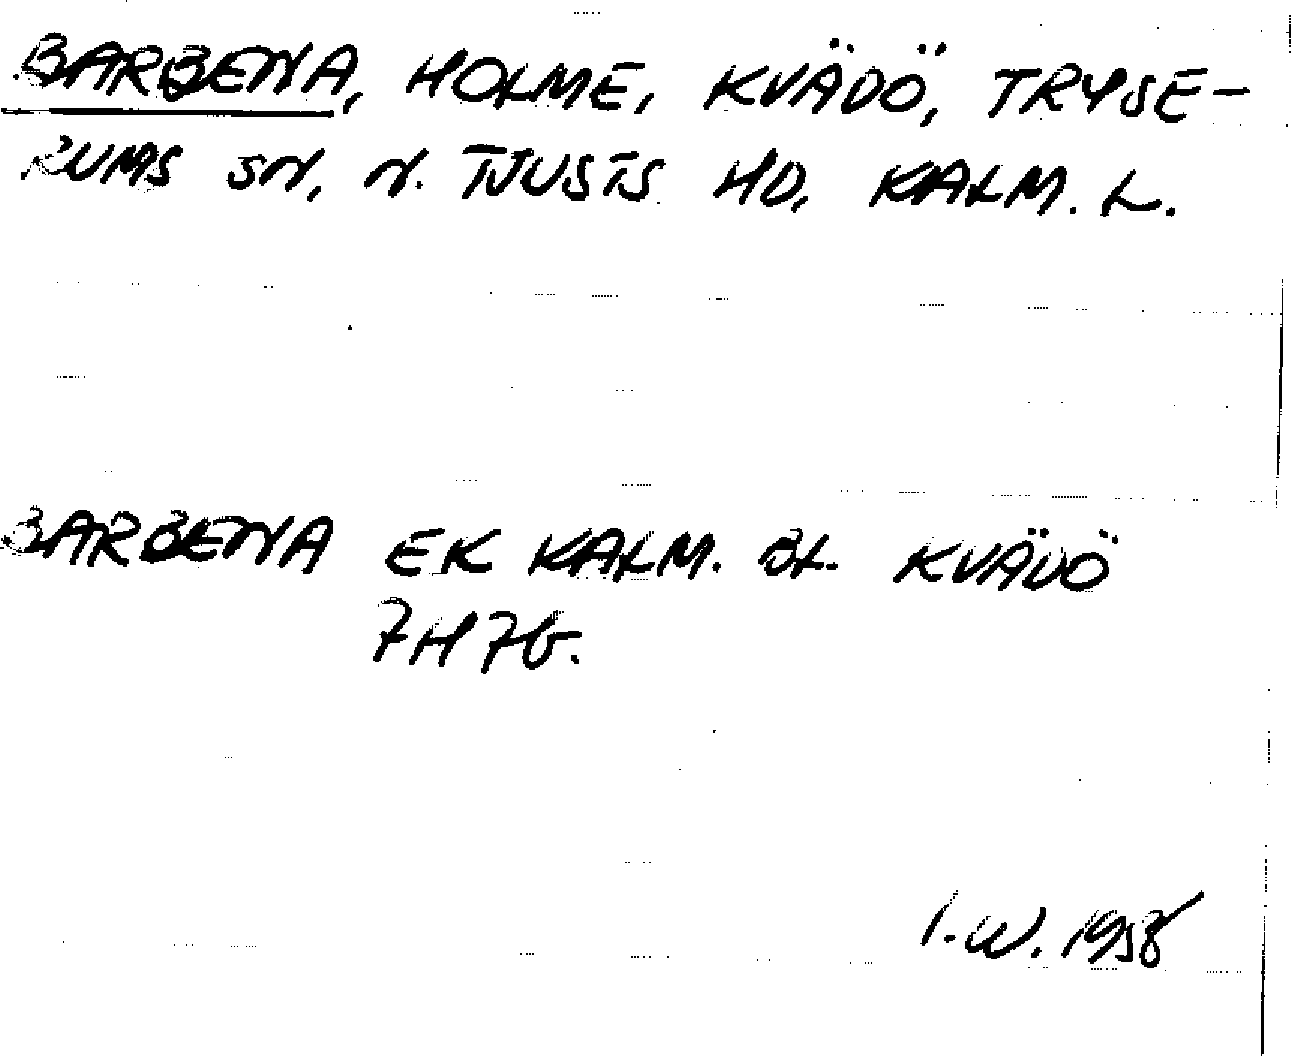 BARBENA, HOLME, KVÄDÖ, TRYSE-
RUMS SN, N. TJUSTS HD, KALM. L.
BARBENA EK KALM. BL. KVÄDÖ
7H7b.
I.W. 1958